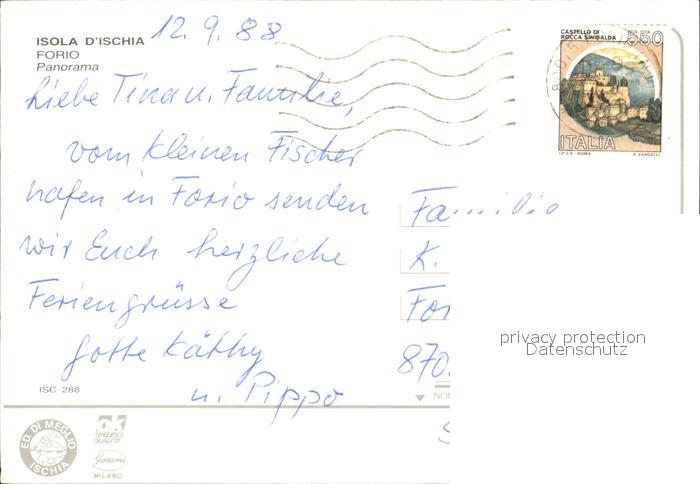 12.9.88
ISOLA D'ISCHIA
FORIO
Panorama
Liebe Tina u. Familie,
vom kleinen Fischer
hafen in Forio senden
wir Euch herzliche
Feriengrüsse
Gotte Käthy
u. Pippo
ISC 288
ED. DI MEGLIO
ISCHIA
ok
SPEDISCI
QUALITÀ
Garami
MILANO
CASTELLO DI
ROCCA SINIBALDA
550
ITALIA
I.P.Z.S. - ROMA
E. VANGELLI
Familie
K.
For
870
NON
privacy protection
Datenschutz